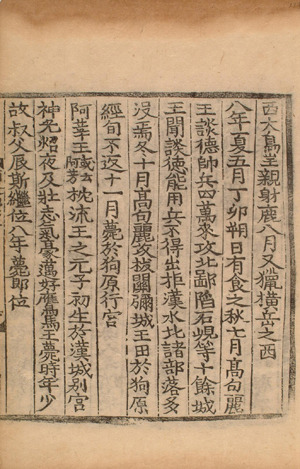 西大島王親射鹿八月又獵橫岳之西
八年夏五月丁卯朔日有食之秋七月髙句麗
王談德帥兵四萬來攻北鄙陷石峴等十餘城
王聞談德能用兵不得出拒漢水北諸部落多
沒焉冬十月髙句麗攻拔關彌城王田於狗原
經旬不返十一月薨於狗原行宮
阿莘王或云阿芳枕流王之元子初生於漢城別宮
神光炤夜及壯志氣豪邁好鷹馬王薨時年少
故叔父辰斯繼位八年薨即位